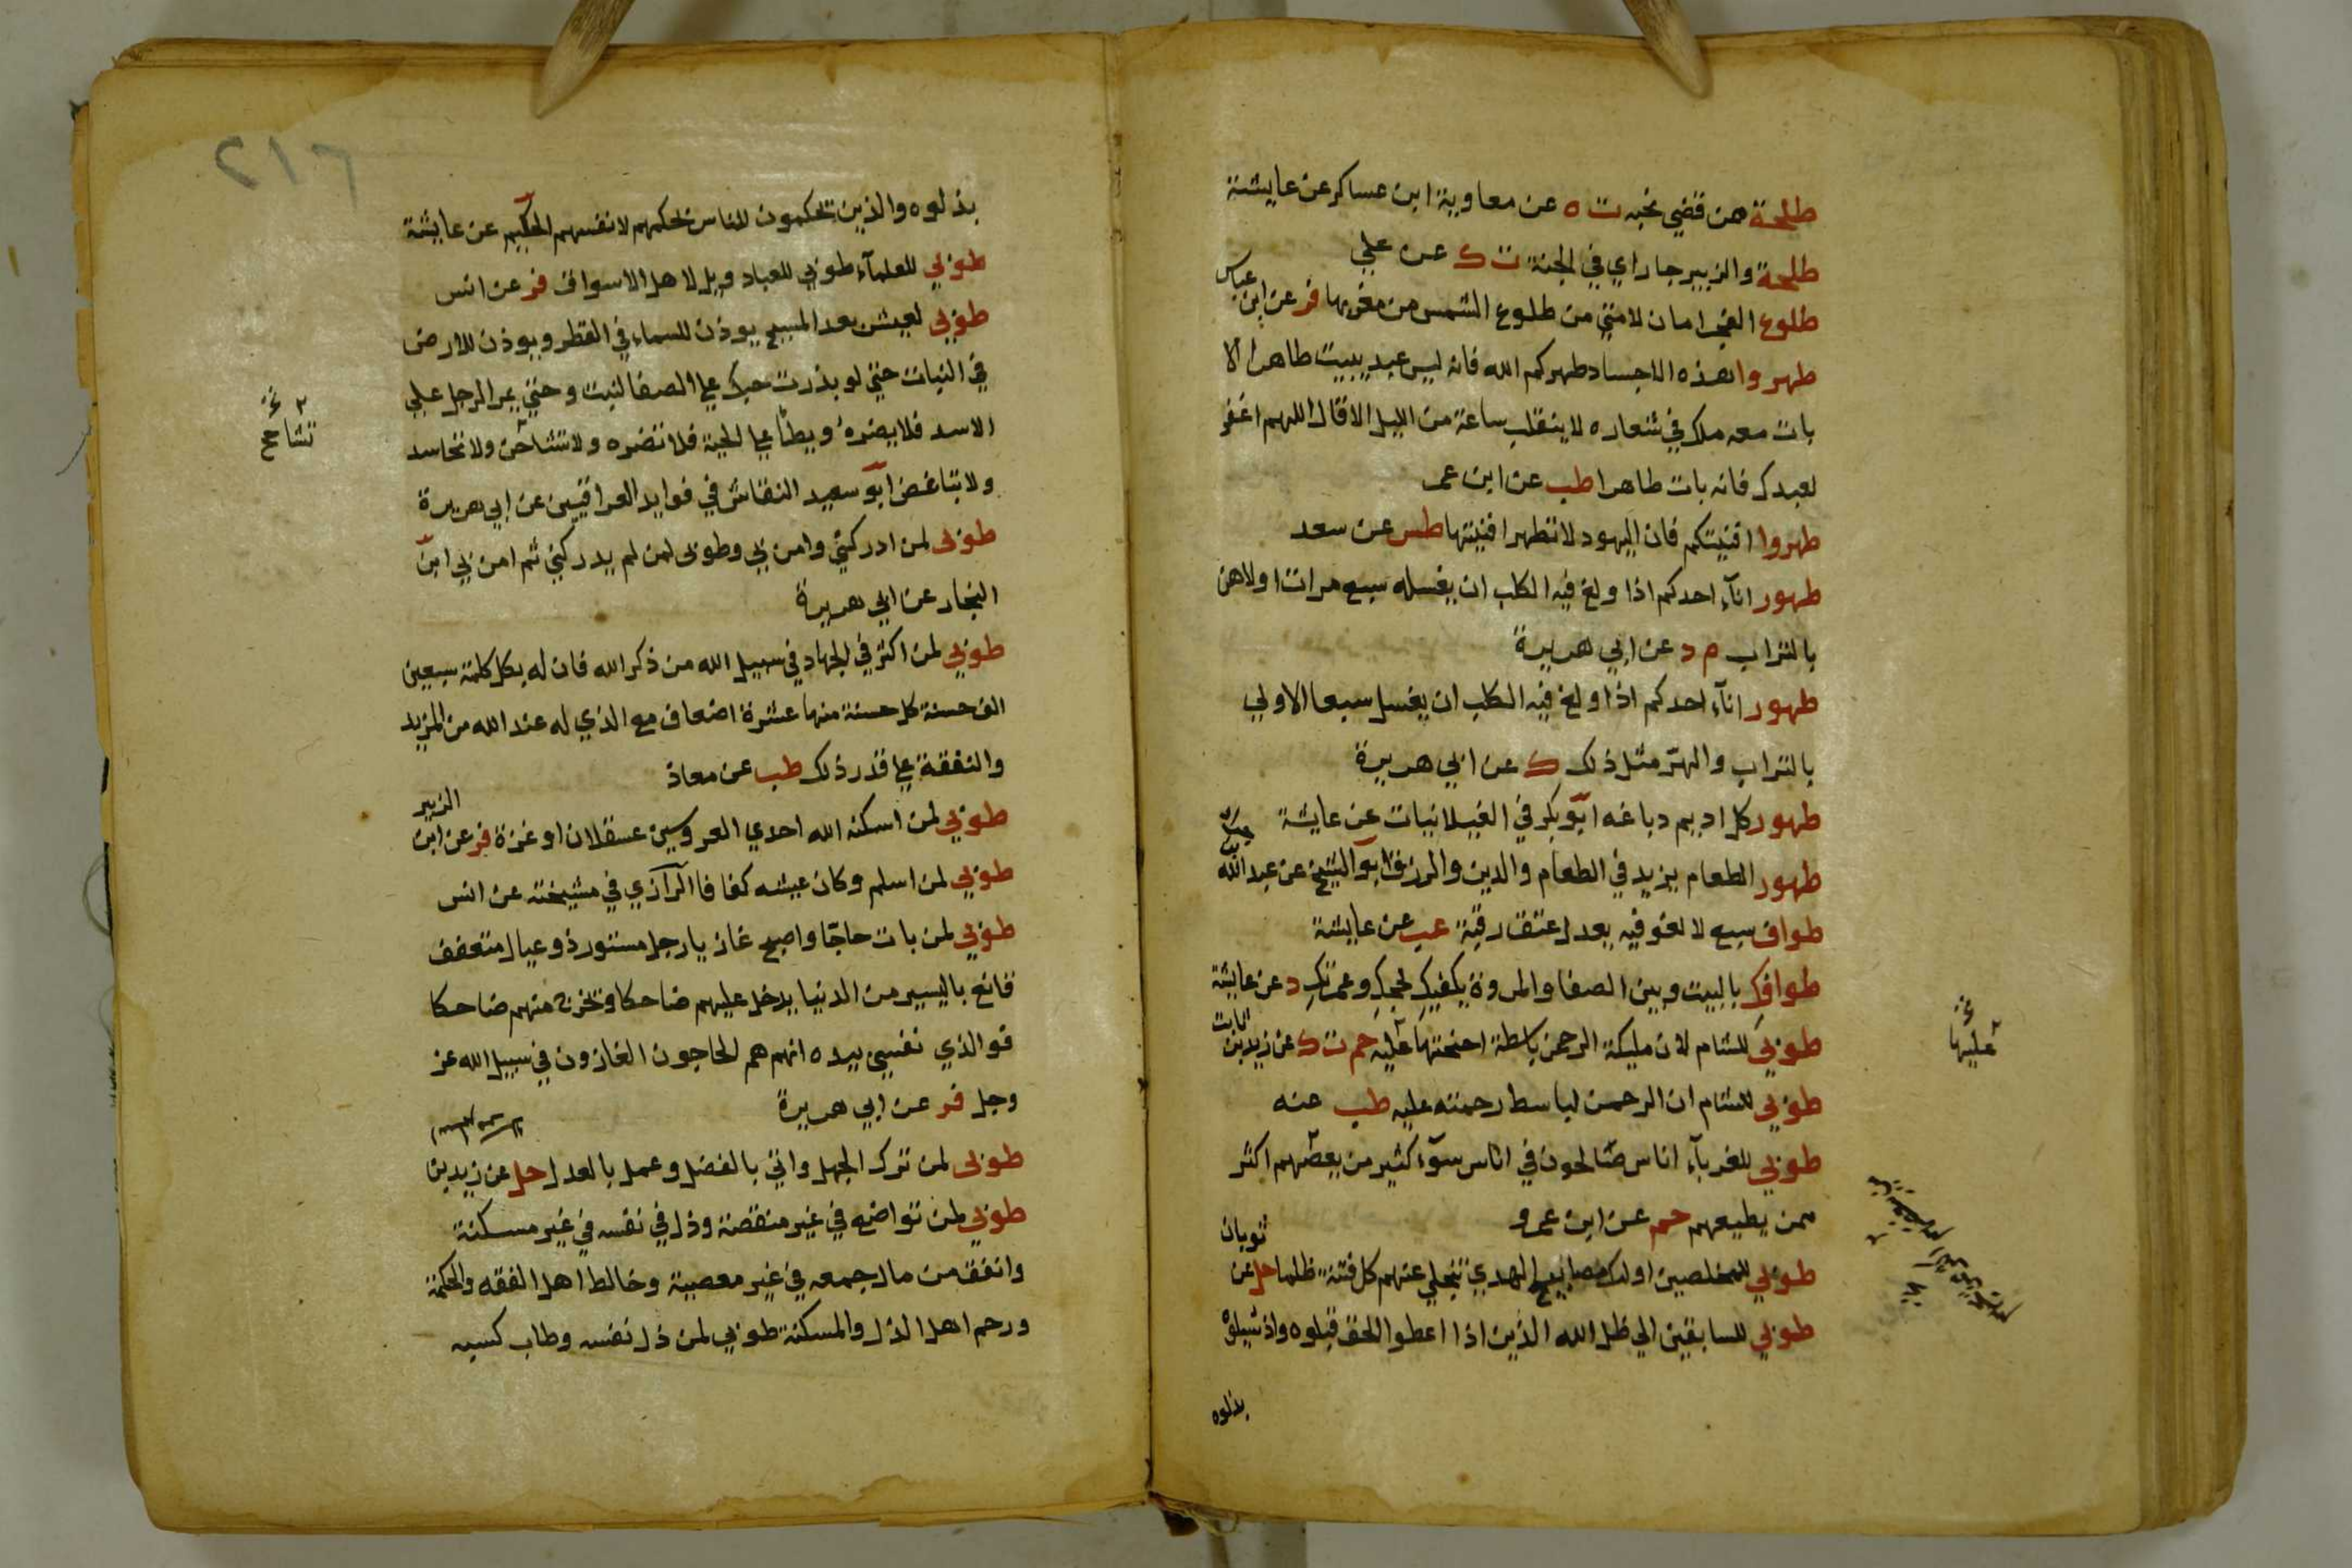 طلحة ممن قضي نحبه ت ه عن معاوية ابن عساكر عن عايشة
طلحة والزبير جاراي في الجنة ت ك عن علي
طلوع الفجر امان لامتي من طلوع الشمس من مغربها فر عن ابن عباس
طهروا هذه الاجساد طهركم الله فانه ليس عبد يبيت طاهرا الا
بات معه ملك في شعاره لا ينقلب ساعة من الليل الا قال اللهم اغفر
لعبدك فانه بات طاهرا طب عن ابن عمر
طهروا افنيتكم فان اليهود لا تطهر افنيتها طس عن سعد
طهور انآء احدكم اذا ولغ فيه الكلب ان يغسله سبع مرات اولاهن
بالتراب م د عن ابي هريرة
طهور انآء احدكم اذا ولغ فيه الكلب ان يغسل سبعا الاولي
بالتراب والهر مثل ذلك ك عن ابي هريرة
طهور كل اديم دباغه ابو بكر في الغيلانيات عن عايشة
طهور الطعام يزيد في الطعام والدين والرزق ابو الشيخ عن عبد الله
طواف سبع لا لغو فيه يعدل عتق رقبة عب عن عايشة
طوافك بالبيت وبين الصفا والمروة يكفيك لحجك وعمرتك د عن عايشة
طوبي للشام لان مليكة الرحمن باسطة اجنحتها عليه حم ت ك عن زيد بن ثابت
عليها
طوبي للشام ان الرحمن لباسط رحمته عليه طب عنه
طوبي للغربآء اناس صالحون في اناس سوء كثير من يعصهم اكثر
ممن يطيعهم حم عن ابن عمرو
طوبي للمخلصين اولئك مصابيح الهدي تنجلي عنهم كل فتنة ظلما حل عن ثوبان
طوبي للسابقين الي ظل الله الذين اذا اعطوا الحق قبلوه واذ سيلوه
بذلوه
٢١٦
بذلوه والذين يحكمون للناس بحكمهم لانفسهم الحكيم عن عايشة
طوبي للعلمآء طوبي للعباد ويل لاهل الاسواق فر عن انس
طوبي لعيش بعد المسيح يوذن للسماء في القطر ويوذن للارض
في النبات حتي لو بذرت حبك علي الصفا لنبت وحتي يمر الرجل علي
الاسد فلا يضره ويطأ علي الحية فلا تضره ولا تشاحن ولا تحاسد
تشاحح
ولا تباغض ابو سعيد النقاش في فوايد العراقيين عن ابي هريرة
طوبى لمن ادركني وامن بي وطوبى لمن لم يدركني ثم امن بي ابن
النجار عن ابي هريرة
طوبي لمن اكثر في الجهاد في سبيل الله من ذكر الله فان له بكل كلمة سبعين
الف حسنة كل حسنة منها عشرة اضعاف مع الذي له عند الله من المزيد
والنفقة علي قدر ذلك طب عن معاذ
طوبي لمن اسكنه الله احدي العروسين عسقلان او غزة فر عن ابن الزبير
طوبي لمن اسلم وكان عيشه كفافا الرازي في مشيخته عن انس
طوبي لمن بات حاجا واصبح غازيا رجل مستور ذو عيال متعفف
قانع باليسير من الدنيا يدخل عليهم ضاحكا ويخرج منهم ضاحكا
فوالذي نفسي بيده انهم هم الحاجون الغازون في سبيل الله عز
وجل فر عن ابي هريرة
طوبى لمن ترك الجهل واتي بالفضل وعمل بالعدل حل عن زيد بن
طوبي لمن تواضع في غير منقصة وذل في نفسه في غير مسكنة
وانفق من مال جمعه في غير معصية وخالط اهل الفقه والحكمة
ورحم اهل الذل والمسكنة طوبي لمن ذل نفسه وطاب كسبه